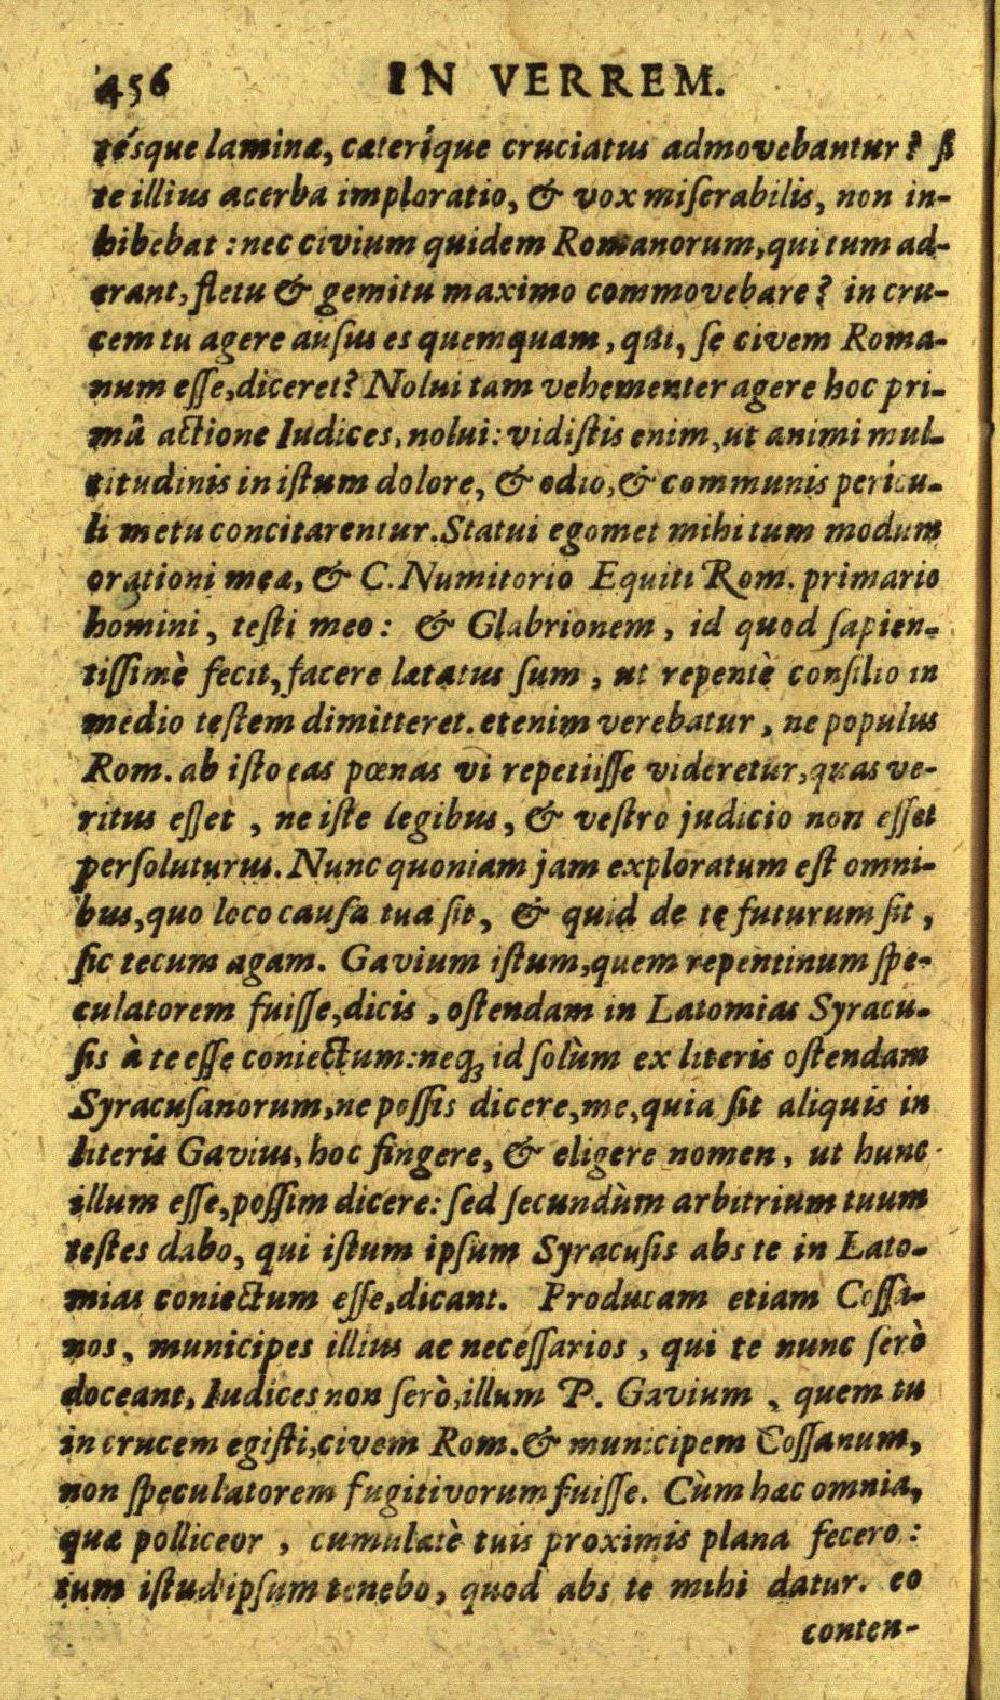 456 IN VERREM.
tésque laminæ, cæteríque cruciatus admovebantur? si
te illius acerba imploratio, & vox miserabilis, non in-
hibebat: nec civium quidem Romanorum, qui tum ad-
erant, fletu & gemitu maximo commovebare? in cru-
cem tu agere ausus es quemquam, qui, se civem Roma-
num esse, diceret? Nolui tam vehementer agere hoc pri-
mâ actione Iudices, nolui: vidistis enim, ut animi mul-
titudinis in istum dolore, & odio, & communis pericu-
li metu concitarentur. Statui egomet mihi tum modum
orationi meæ, & C. Numitorio Equiti Rom. primario
homini, testi meo: & Glabrionem, id quod sapien-
tissimè fecit, facere lætatus sum, ut repentè consilio in
medio testem dimitteret. etenim verebatur, ne populus
Rom. ab isto eas pœnas vi repetiisse videretur, quas ve-
ritus esset, ne iste legibus, & vestro judicio non esset
persoluturus. Nunc quoniam jam exploratum est omni-
bus, quo loco causa tua sit, & quid de te futurum sit,
sic tecum agam. Gavium istum, quem repentinum spe-
culatorem fuisse, dicis, ostendam in Latomias Syracu-
sis à te esse coniectum: neq; id solùm ex literis ostendam
Syracusanorum, ne possis dicere, me, quia sit aliquis in
literis Gavius, hoc fingere, & eligere nomen, ut hunc
illum esse, possim dicere: sed secundùm arbitrium tuum
testes dabo, qui istum ipsum Syracusis abs te in Lato-
mias coniectum esse, dicant. Producam etiam Cossa-
nos, municipes illius ac necessarios, qui te nunc serò
doceant, Iudices non serò, illum P. Gavium, quem tu
in crucem egisti, civem Rom. & municipem Cossanum,
non speculatorem fugitivorum fuisse. Cùm hæc omnia,
quæ polliceor, cumulatè tuis proximis plana fecero:
tum istud ipsum tenebo, quod abs te mihi datur. eo
conten-